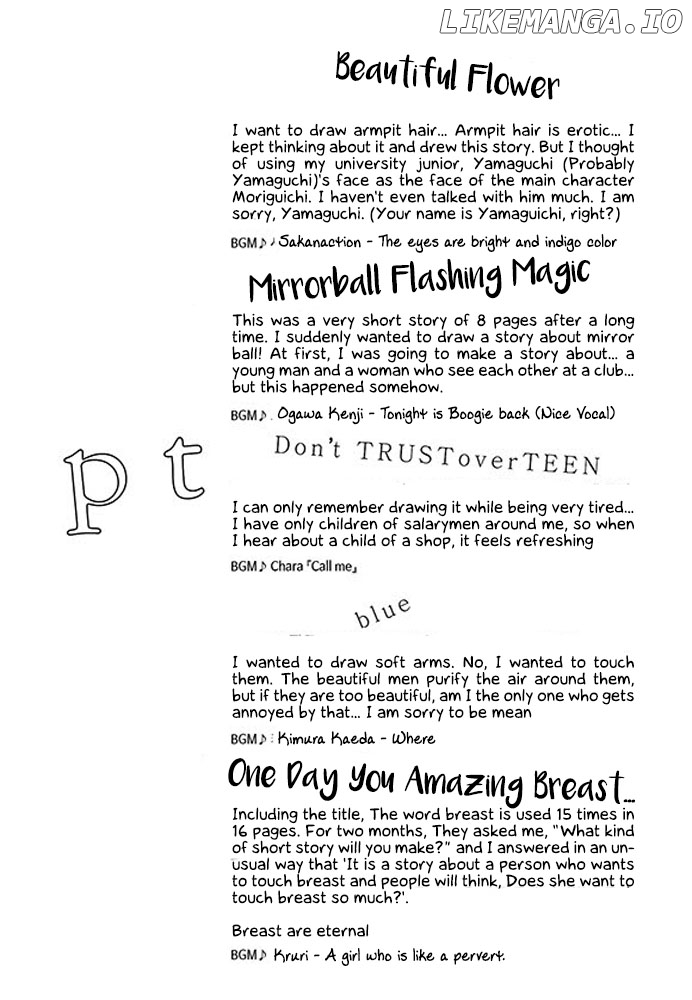 LIKEMANGA.IO
Beautiful Flower
I want to draw armpit hair... Armpit hair is erotic... I
kept thinking about it and drew this story. But I thought
of using my university junior, Yamaguchi (Probably
Yamaguchi)'s face as the face of the main character
Moriguichi. I haven't even talked with him much. I am
sorry, Yamaguchi. (Your name is Yamaguichi, right?)
BGM♪ Sakanaction - The eyes are bright and indigo color
Mirrorball Flashing Magic
This was a very short story of 8 pages after a long
time. I suddenly wanted to draw a story about mirror
ball! At first, I was going to make a story about... a
young man and a woman who see each other at a club...
but this happened somehow.
BGM♪ Ogawa Kenji - Tonight is Boogie back (Nice Vocal)
pt
Don't TRUSToverTEEN
I can only remember drawing it while being very tired...
I have only children of salarymen around me, so when
I hear about a child of a shop, it feels refreshing
BGM♪ Chara「Call me」
blue
I wanted to draw soft arms. No, I wanted to touch
them. The beautiful men purify the air around them,
but if they are too beautiful, am I the only one who gets
annoyed by that... I am sorry to be mean
BGM♪ Kimura Kaeda - Where
One Day You Amazing Breast...
Including the title, The word breast is used 15 times in
16 pages. For two months, They asked me, "What kind
of short story will you make?" and I answered in an un-
usual way that 'It is a story about a person who wants
to touch breast and people will think, Does she want to
touch breast so much?'.
Breast are eternal
BGM♪ Kruri - A girl who is like a pervert.